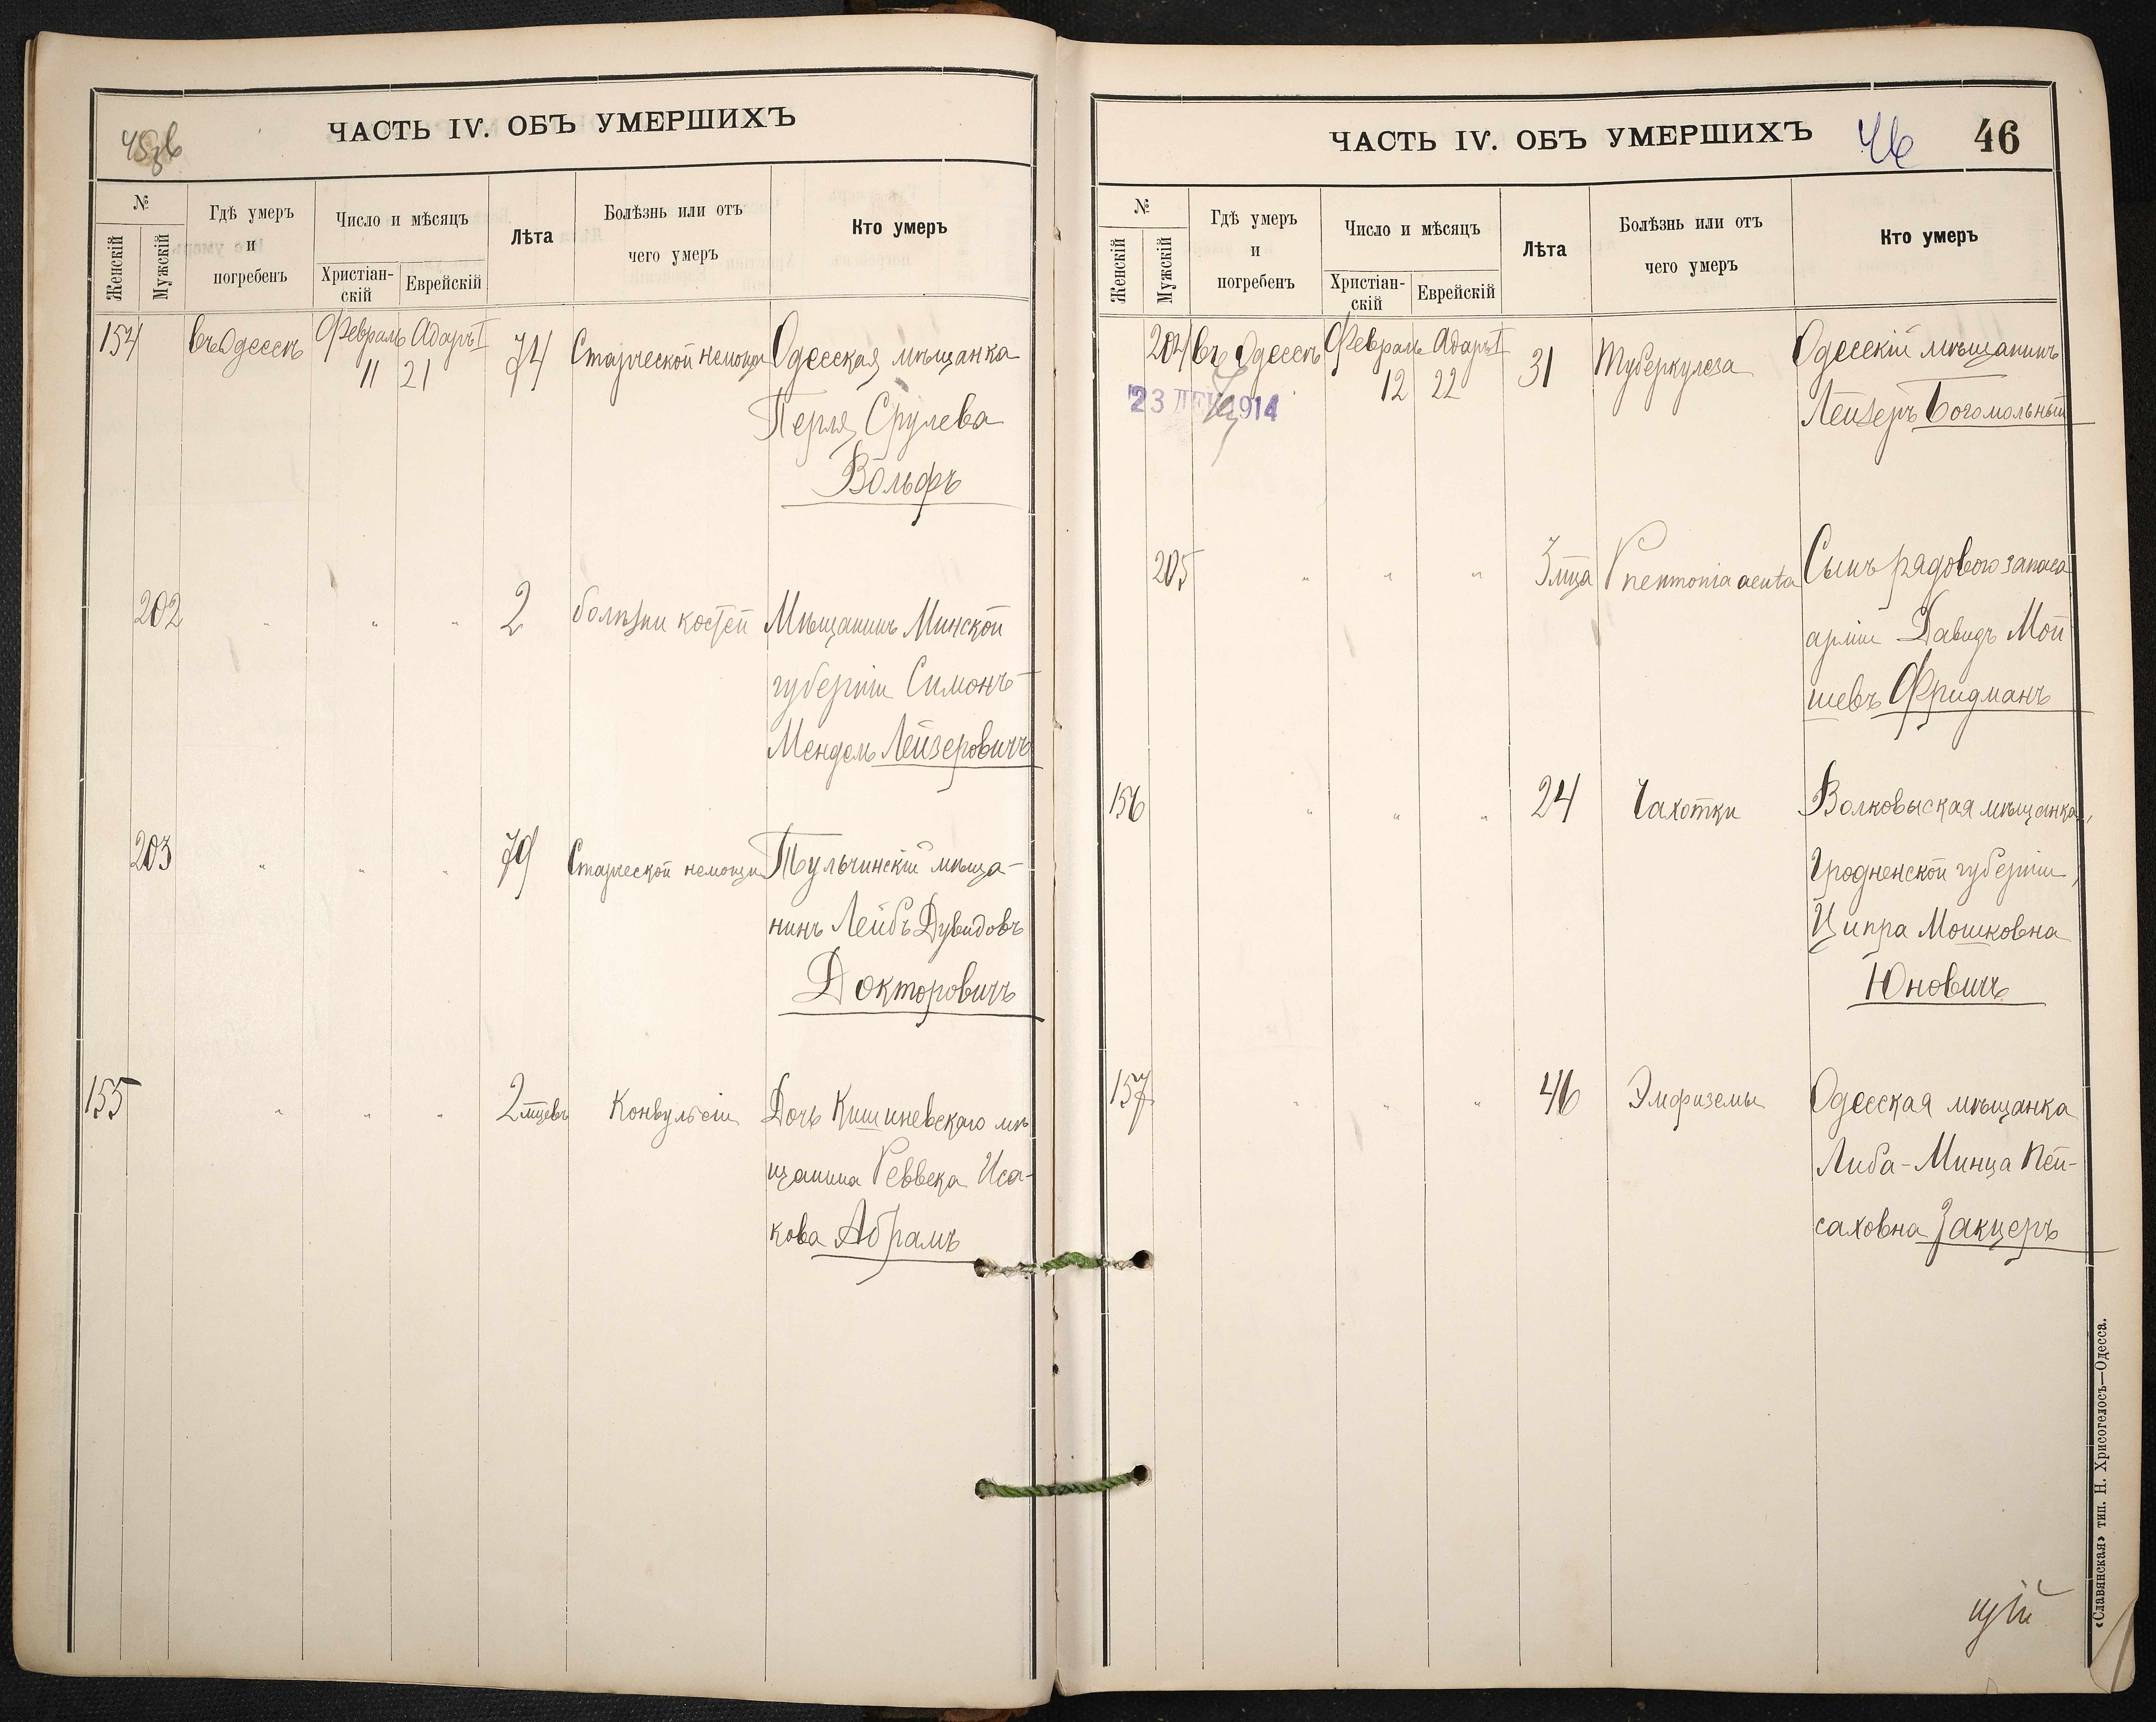 45 об
ЧАСТЬ IV. ОБЪ УМЕРШИХЪ
№
Женскій
Мужскій
Гдѣ умеръ
и
погребенъ
Число и мѣсяцъ
Христіан-
скій
Еврейскій
Лѣта
Болѣзнь или отъ
чего умеръ
Кто умеръ
154 въ Одессѣ Февраль Адаръ I 74 Старческой немощи Одесская мѣщанка
11 21
Перля Срулева
Вольфъ
202 " " " 2 болѣзни костей Мѣщанинъ Минской
губерніи Симонъ-
Мендель Лейзеровичъ
203 " " " 79 Старческой немощи Тульчинскій мѣща-
нинъ Лейбъ Дувидовъ
Докторовичъ
155 " " " 2 мцевъ Конвульсіи Дочь Кишиневскаго мѣ
щанина Реввека Иса-
кова Абрамъ
ЧАСТЬ IV. ОБЪ УМЕРШИХЪ 46 46
№
Женскій
Мужскій
Гдѣ умеръ
и
погребенъ
Число и мѣсяцъ
Христіан-
скій
Еврейскій
Лѣта
Болѣзнь или отъ
чего умеръ
Кто умеръ
204 въ Одессѣ Февраль Адаръ I 31 Туберкулеза Одесскій мѣщанинъ
12 22
23 ДЕК 1914
Лейзеръ Богомольный
205 " " " 3 мца Pnenmonia acuta Сынъ рядового запаса
арміи Давидъ Мой
шевъ Фридманъ
156 " " " 24 Чахотки Волковыская мѣщанка,
Гродненской губерніи,
Ципра Мошковна
Юновичъ
157 " " " 46 Эмфиземы Одесская мѣщанка
Либа-Минца Пей-
саховна Закцеръ
щій
«Славянская» тип. Н. Хрисогелосъ—Одесса.